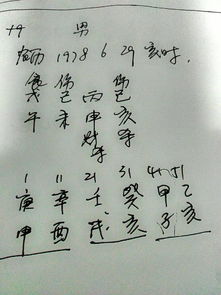 男
阳历 1978 6 29 亥时.
食 伤 伤
戊 己 丙 己
午 未 申 亥
1 11 21 31 41 51
庚 辛 壬 癸 甲 乙
申 酉 戌 亥 子 亥